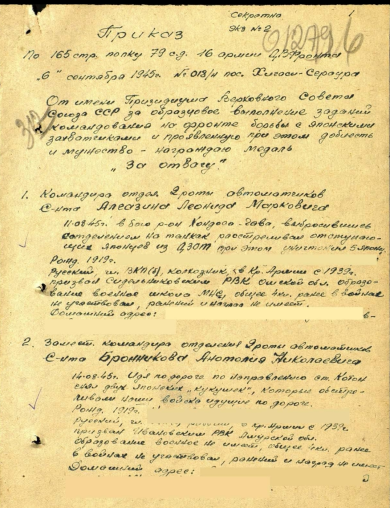 Секретно
Экз № 2
Приказ
По 165 стр. полку 79 с.д. 16 армии
"6" сентября 1945г. № 013/н пос. Хигаси-
От имени Президиума Верховного Совета
Союза ССР за образцовое выполнение заданий
командования на фронте борьбы с Японскими
захватчиками и проявленную при этом доблесть
и мужество - награждаю медаль
"За отвагу"
1. Командира отдел. 2 роты автоматчиков
С-нта Леонида Марковича
11.08.45г. в бою р-он выбросившись
отделением на танках, расстрелял отступаю-
щих Японцев из ДЗОТ при этом уничтожил 5
Рожд. 1919г.
Русский, чл. ВКП(б), колхозник, в Кр. Армии с 1939г.
призван РВК Омской обл. образо-
вание военное школа МНС, общее 4 кл. ранее в войнах
не участвовал, ранений и наград не имеет.
Домашний адрес:
в-
2. Замест. командира отделения 2 роты автоматчик.
С-нта Бронникова Анатолия Николаевича
14.08.45г. Идя по дороге по направлению ст. Котон
снял двух Японских "кукушек", которые обстре-
ливали наши войска идущие по дороге.
Рожд. 1919г.
Русский, чл. в кр. армии с 1939г.
призван Ивановским РВК Амурской обл.
Образование военное не имеет, общее ранее
в войнах не участвовал, ранений и наград не имеет
Домашний адрес: